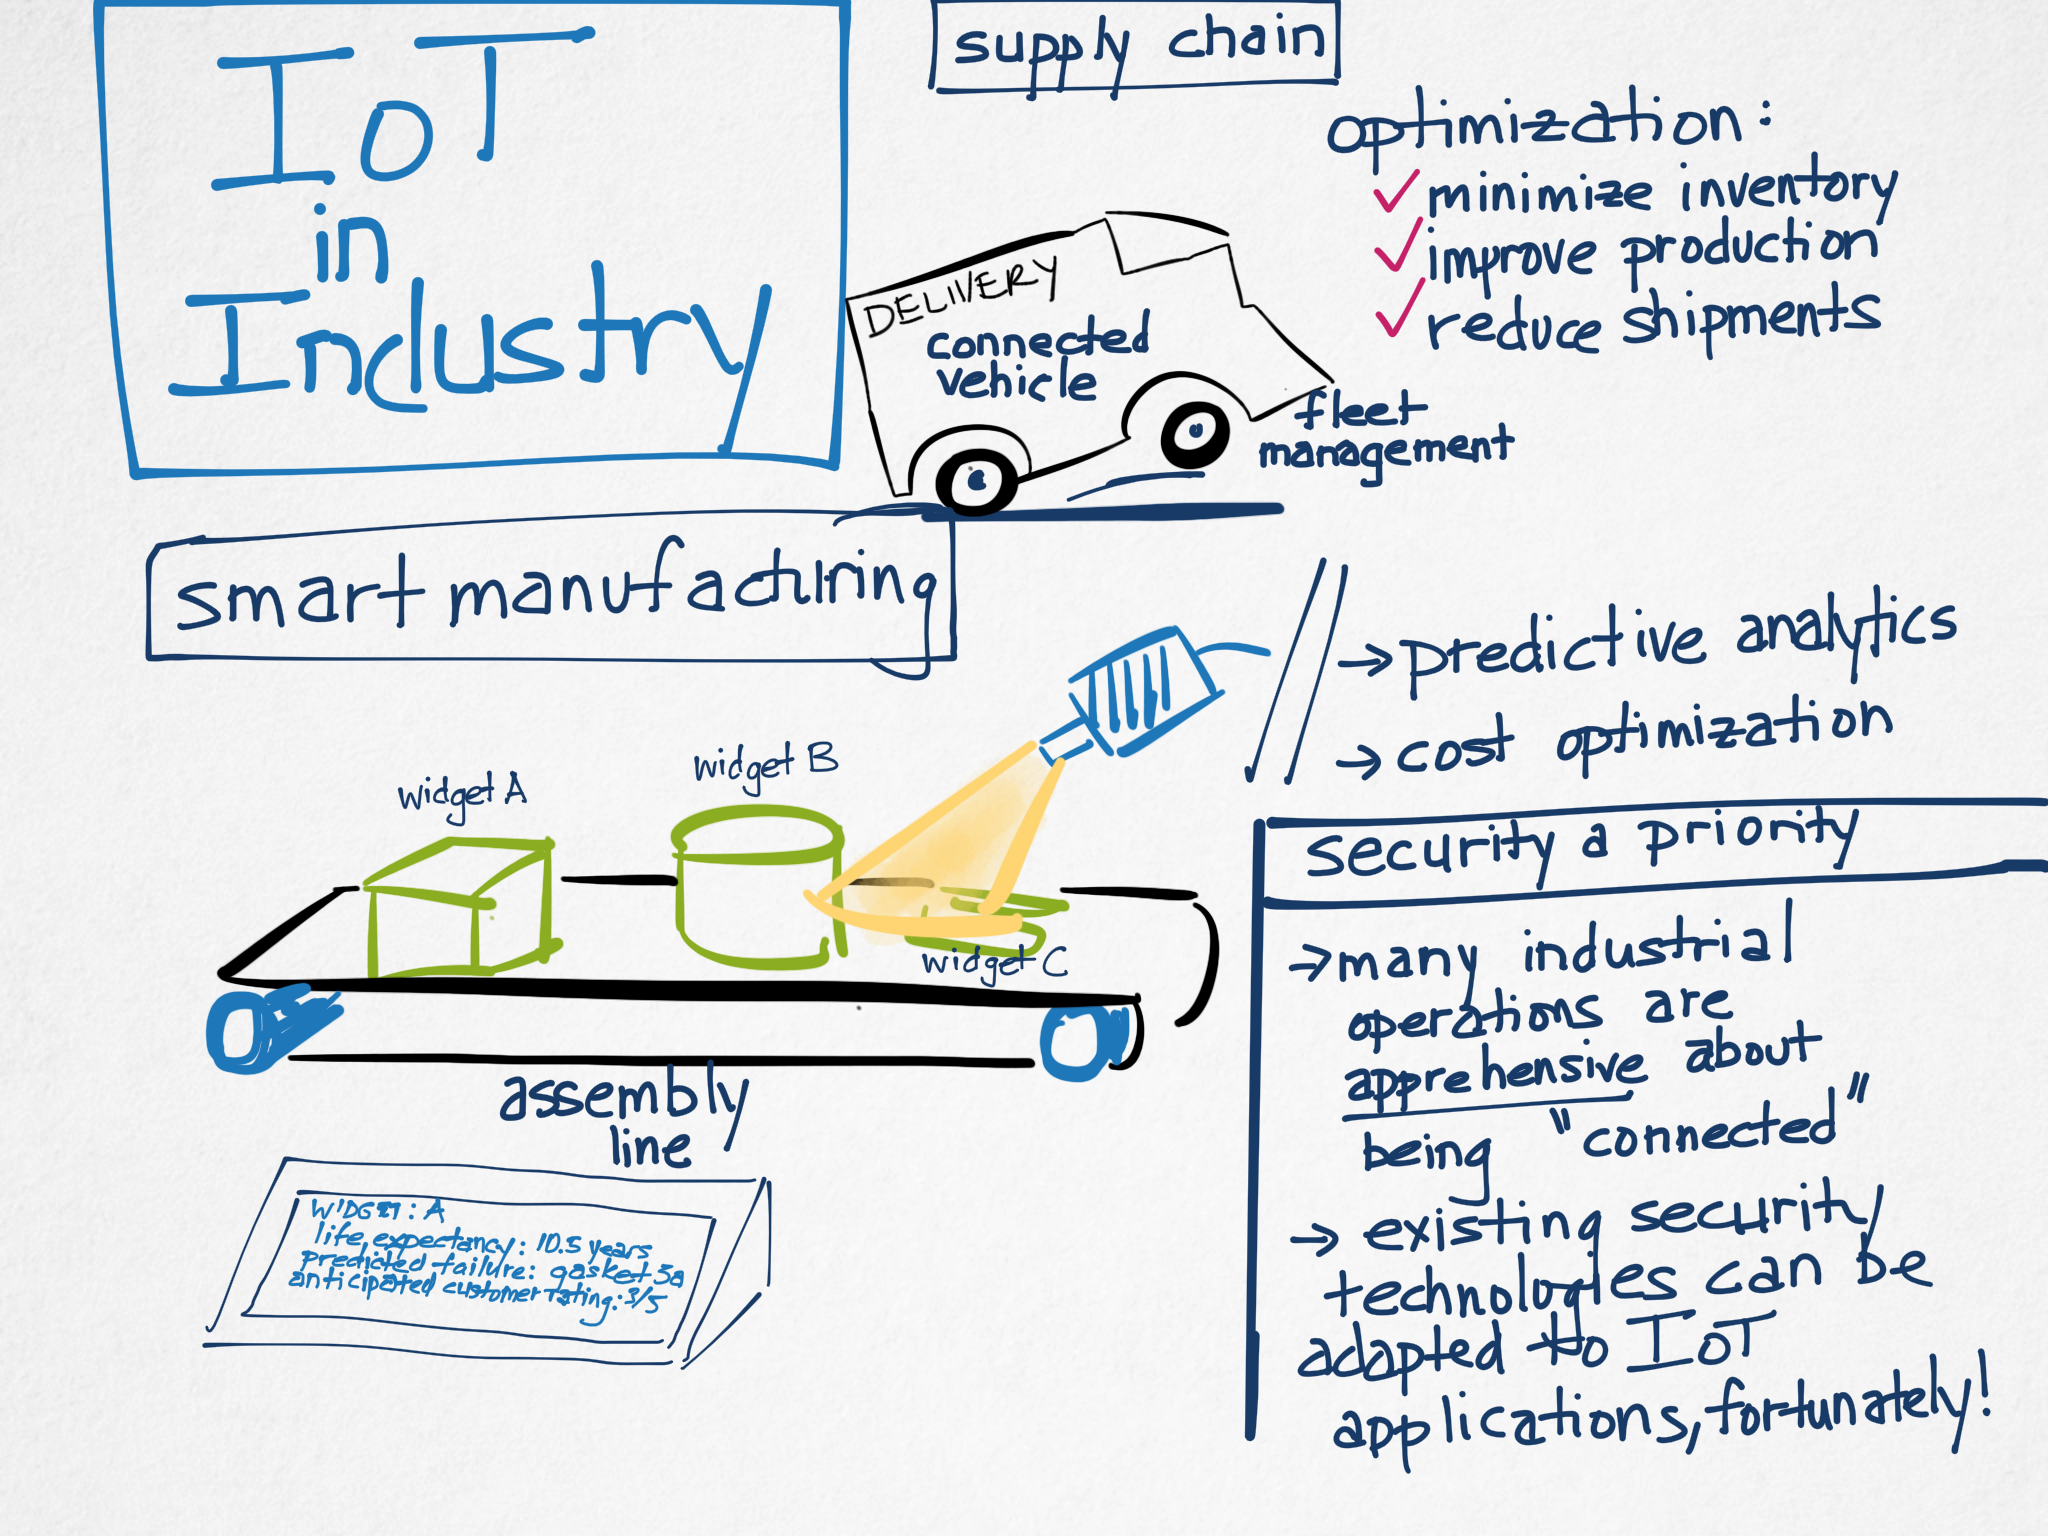 IoT
in
Industry
supply chain
optimization:
✓ minimize inventory
✓ improve production
✓ reduce shipments
DELIVERY
connected
vehicle
fleet
management
smart manufacturing
→ predictive analytics
→ cost optimization
widget A
widget B
widget C
assembly
line
WIDGET: A
life expectancy: 10.5 years
predicted failure: gasket 3a
anticipated customer rating: 3/5
security a priority
→ many industrial
operations are
apprehensive about
being "connected"
→ existing security
technologies can be
adapted to IoT
applications, fortunately!